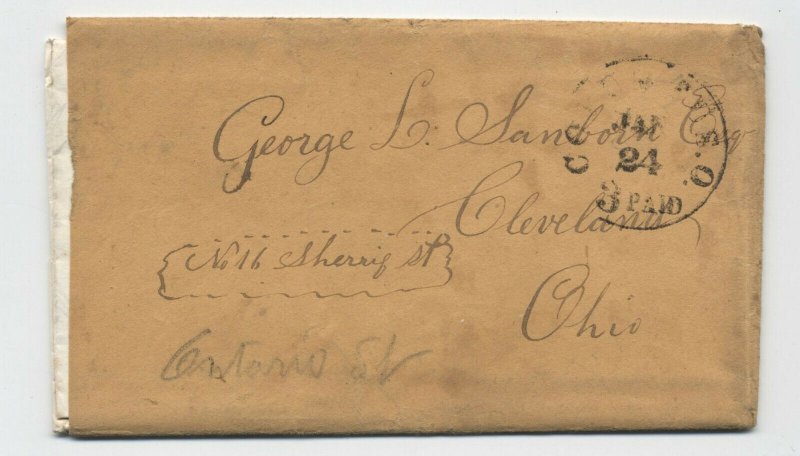 George L. Sanborn Esqr
Cleveland
Ohio
No 16 Sherrif St
Ontario St
JAN
24
3 PAID